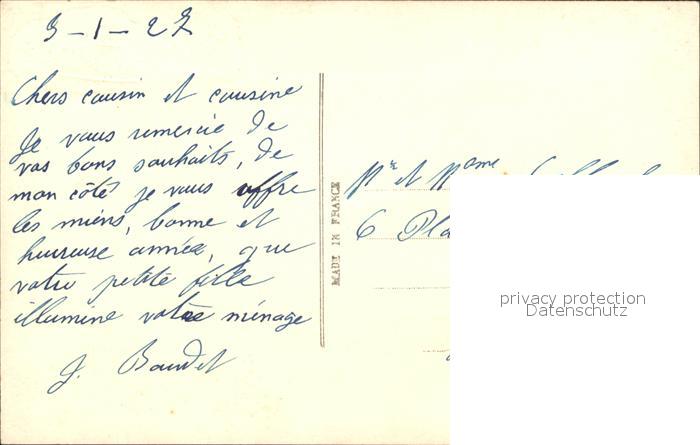 3-1-27
Chers cousin et cousine
Je vous remercie de
vos bons souhaits, de
mon côté je vous offre
les miens, bonne et
heureuse année, que
votre petite fille
illumine votre ménage
J. Baudet
MADE IN FRANCE
Mr et Mme
6 Pla
privacy protection
Datenschutz